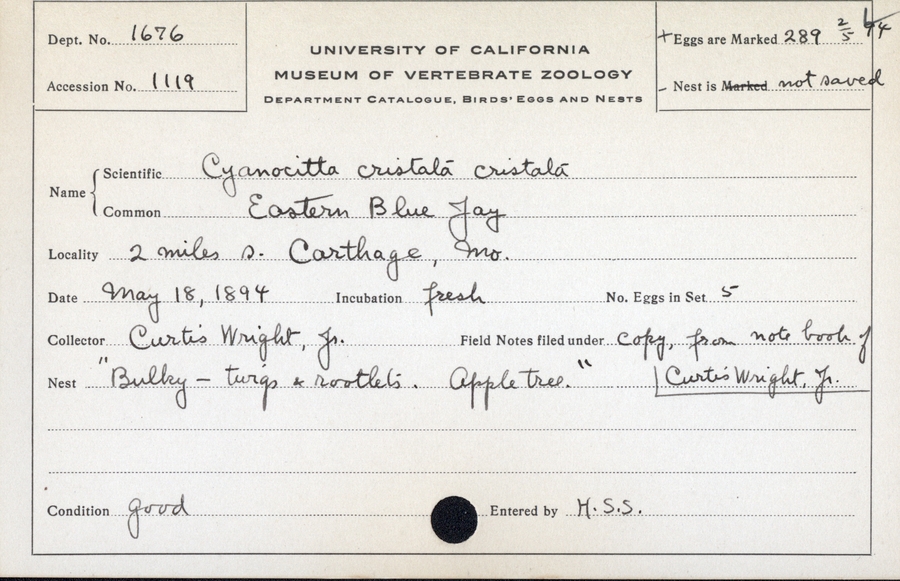 Dept. No. 1676
Accession No. 1119
UNIVERSITY OF CALIFORNIA
MUSEUM OF VERTEBRATE ZOOLOGY
DEPARTMENT CATALOGUE, BIRDS' EGGS AND NESTS
+ Eggs are Marked 289 2/5 94
- Nest is Marked not saved
Name
Scientific Cyanocitta cristata cristata
Common Eastern Blue Jay
Locality 2 miles s. Carthage, Mo.
Date May 18, 1894 Incubation fresh No. Eggs in Set 5
Collector Curtis Wright, Jr. Field Notes filed under copy, from note book of
Nest "Bulky – twigs & rootlets. Apple tree." Curtis Wright, Jr.
Condition good Entered by H.S.S.